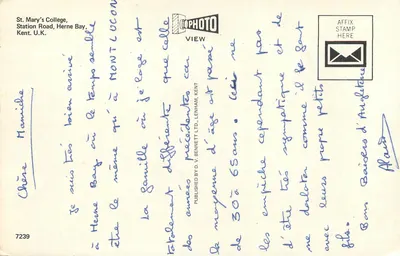 St. Mary's College,
Station Road, Herne Bay,
Kent. U.K.
PHOTO
VIEW
AFFIX
STAMP
HERE
PUBLISHED BY G.V. BENNETT
KENT
7239
Chère Mamiche
je suis très bien arrivé
à Herne Bay où le temps semble
être le même qu'à MONTLUCON
La famille où je loge est
totalement différente que celle
des années précédentes car
la moyenne d'âge est passé
de 30 à 65 ans. ne
les empêche cependant pas
d'être très sympathique et de
me dorloter comme il le font
avec leurs propre petits
fils.
Bons Baisers d'Angleterre